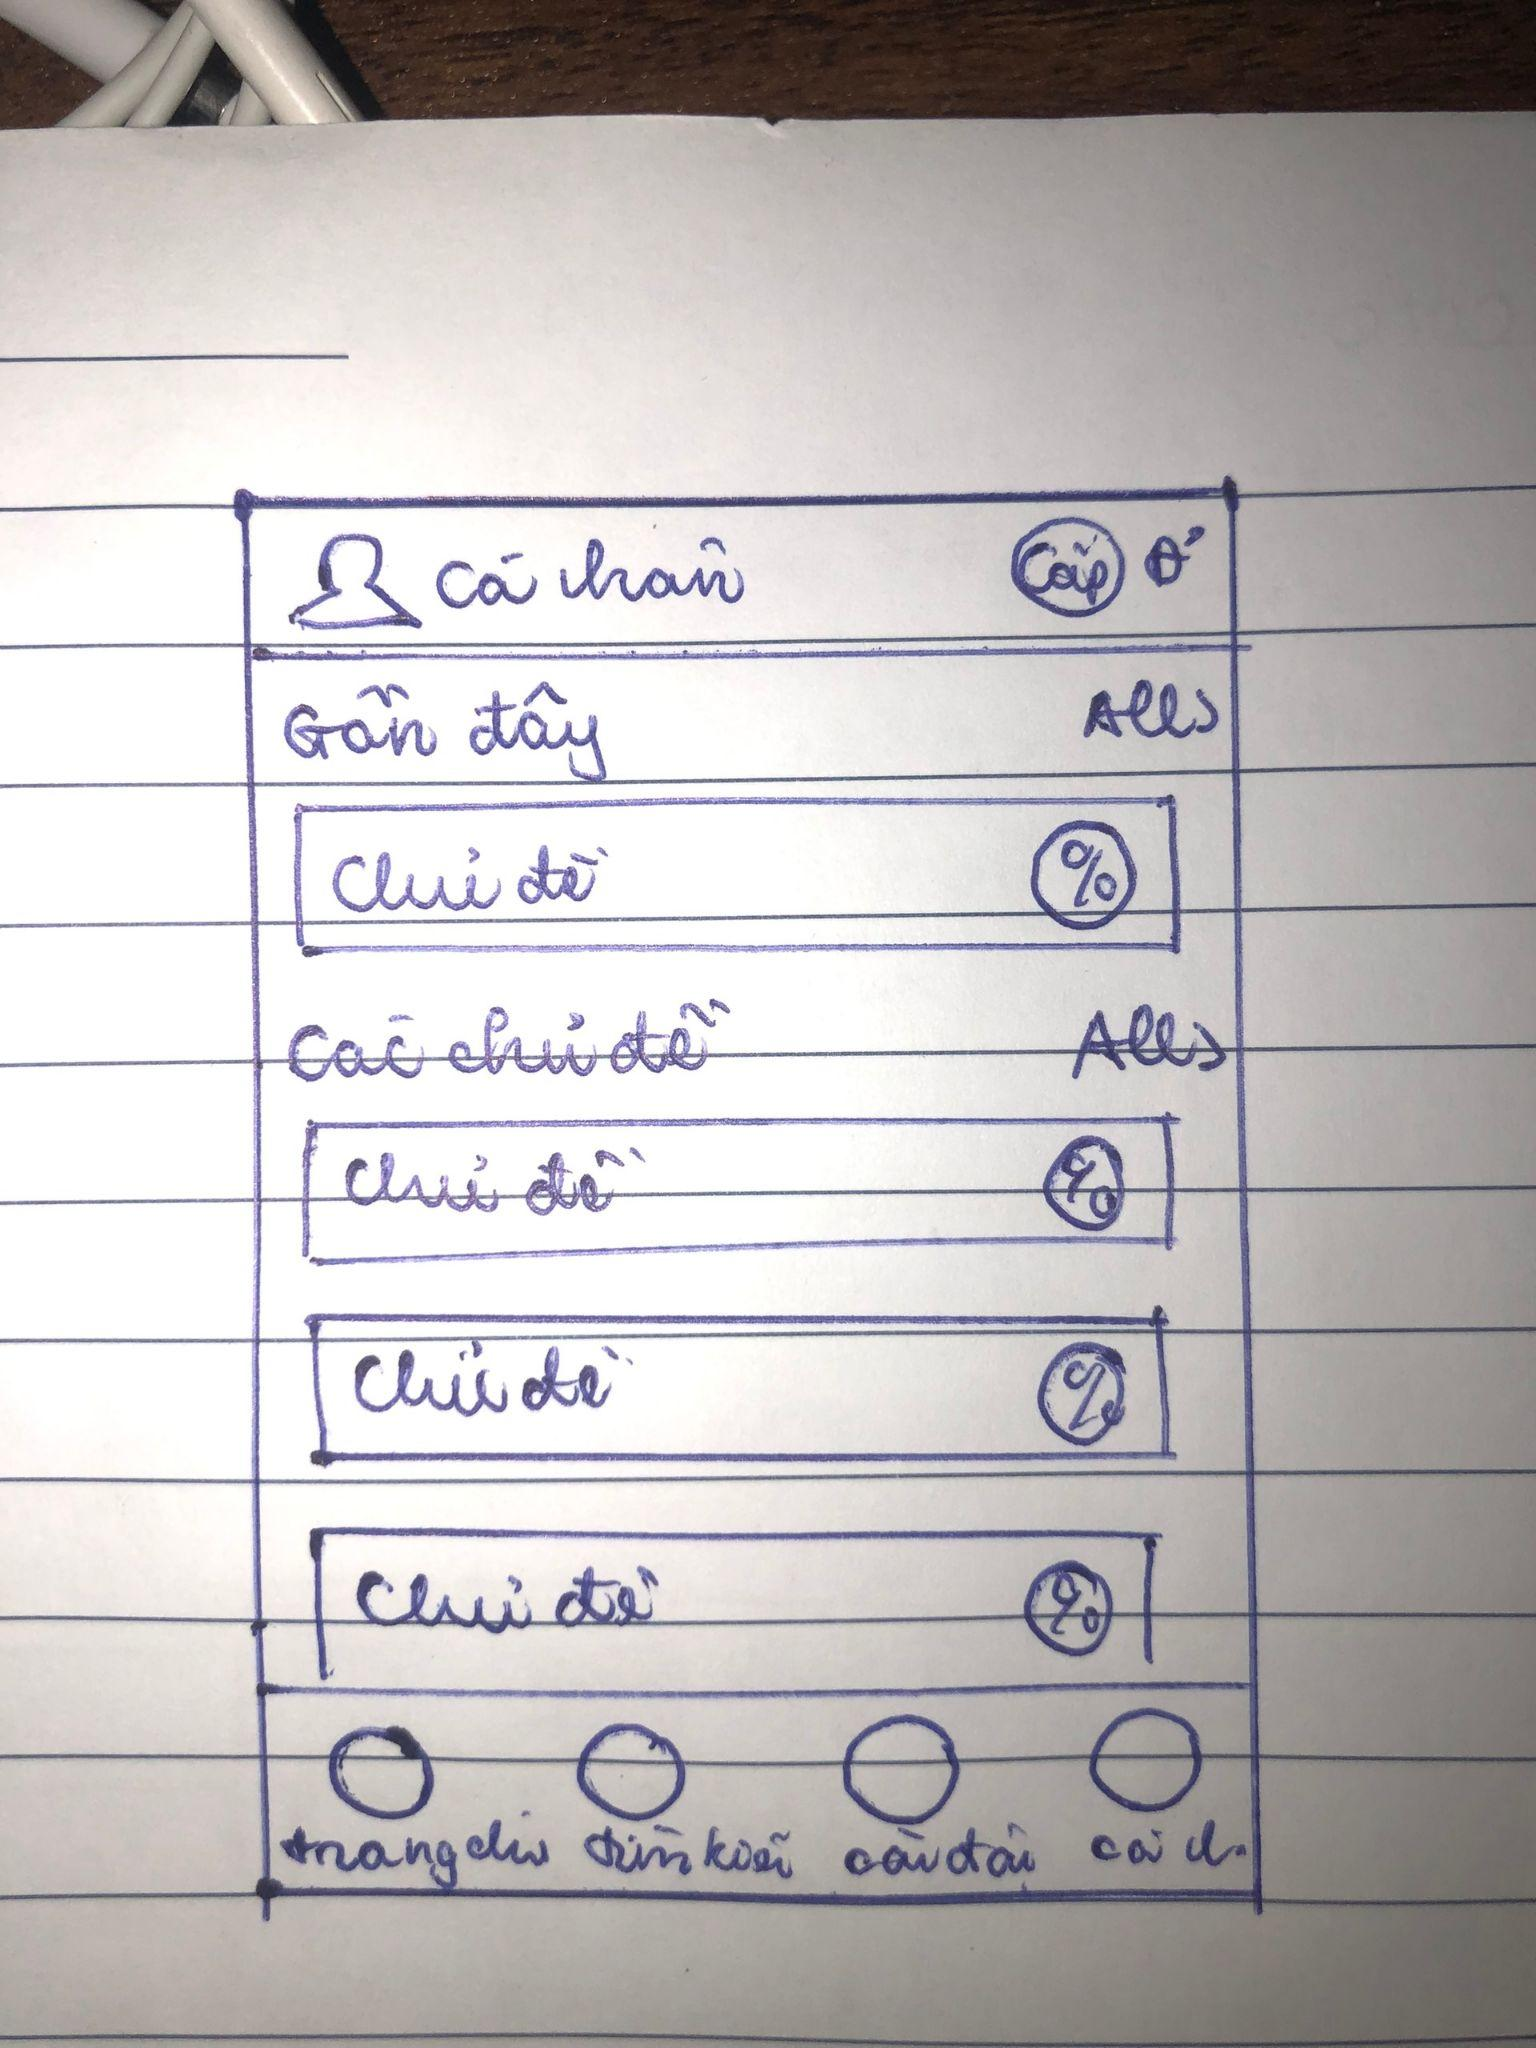 Cá nhân Cấp
Gần đây All>
Chủ đề %
Các chủ đề All>
Chủ đề %
Chủ đề %
Chủ đề %
trang chủ tìm kiếm cài đặt cá n.